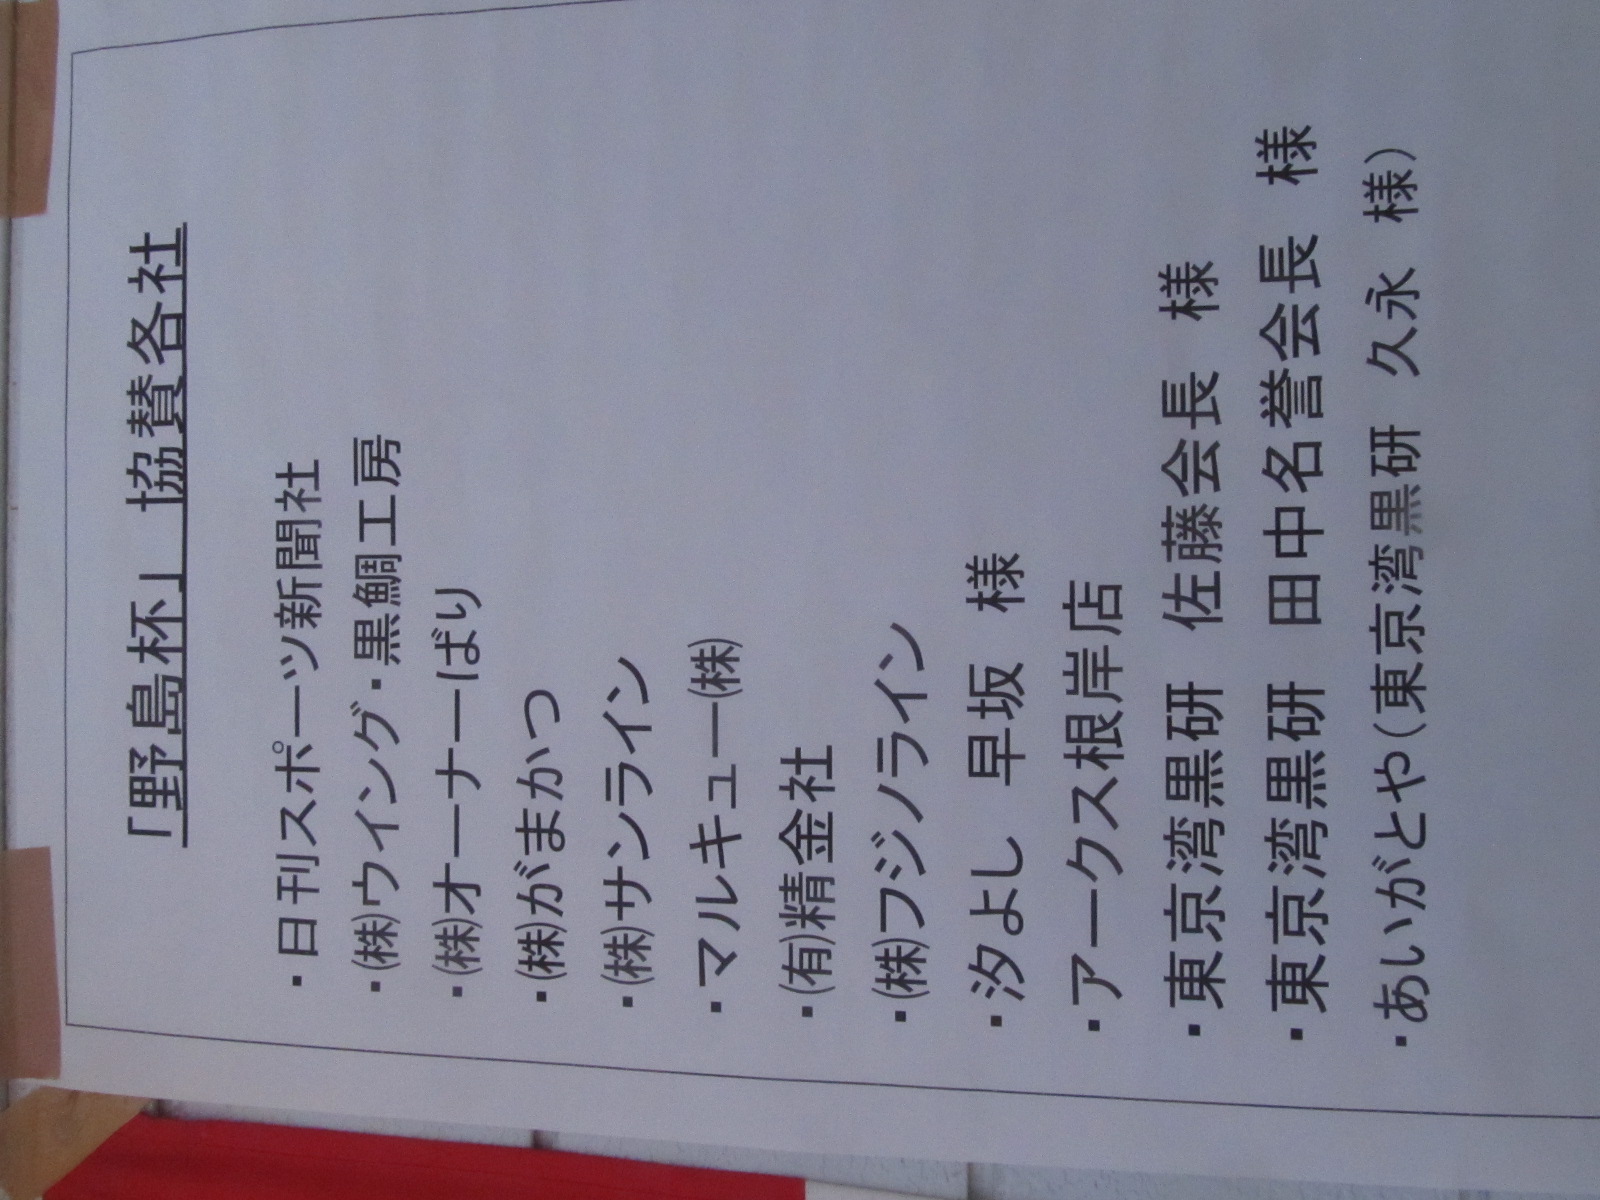 「野島杯」協賛各社
・日刊スポーツ新聞社
・㈱ウイング・黒鯛工房
・㈱オーナーばり
・㈱がまかつ
・㈱サンライン
・マルキュー㈱
・㈲精金社
・㈱フジノライン
・汐よし 早坂 様
・アークス根岸店
・東京湾黒研 佐藤会長 様
・東京湾黒研 田中名誉会長 様
・あいがとや(東京湾黒研 久永 様)